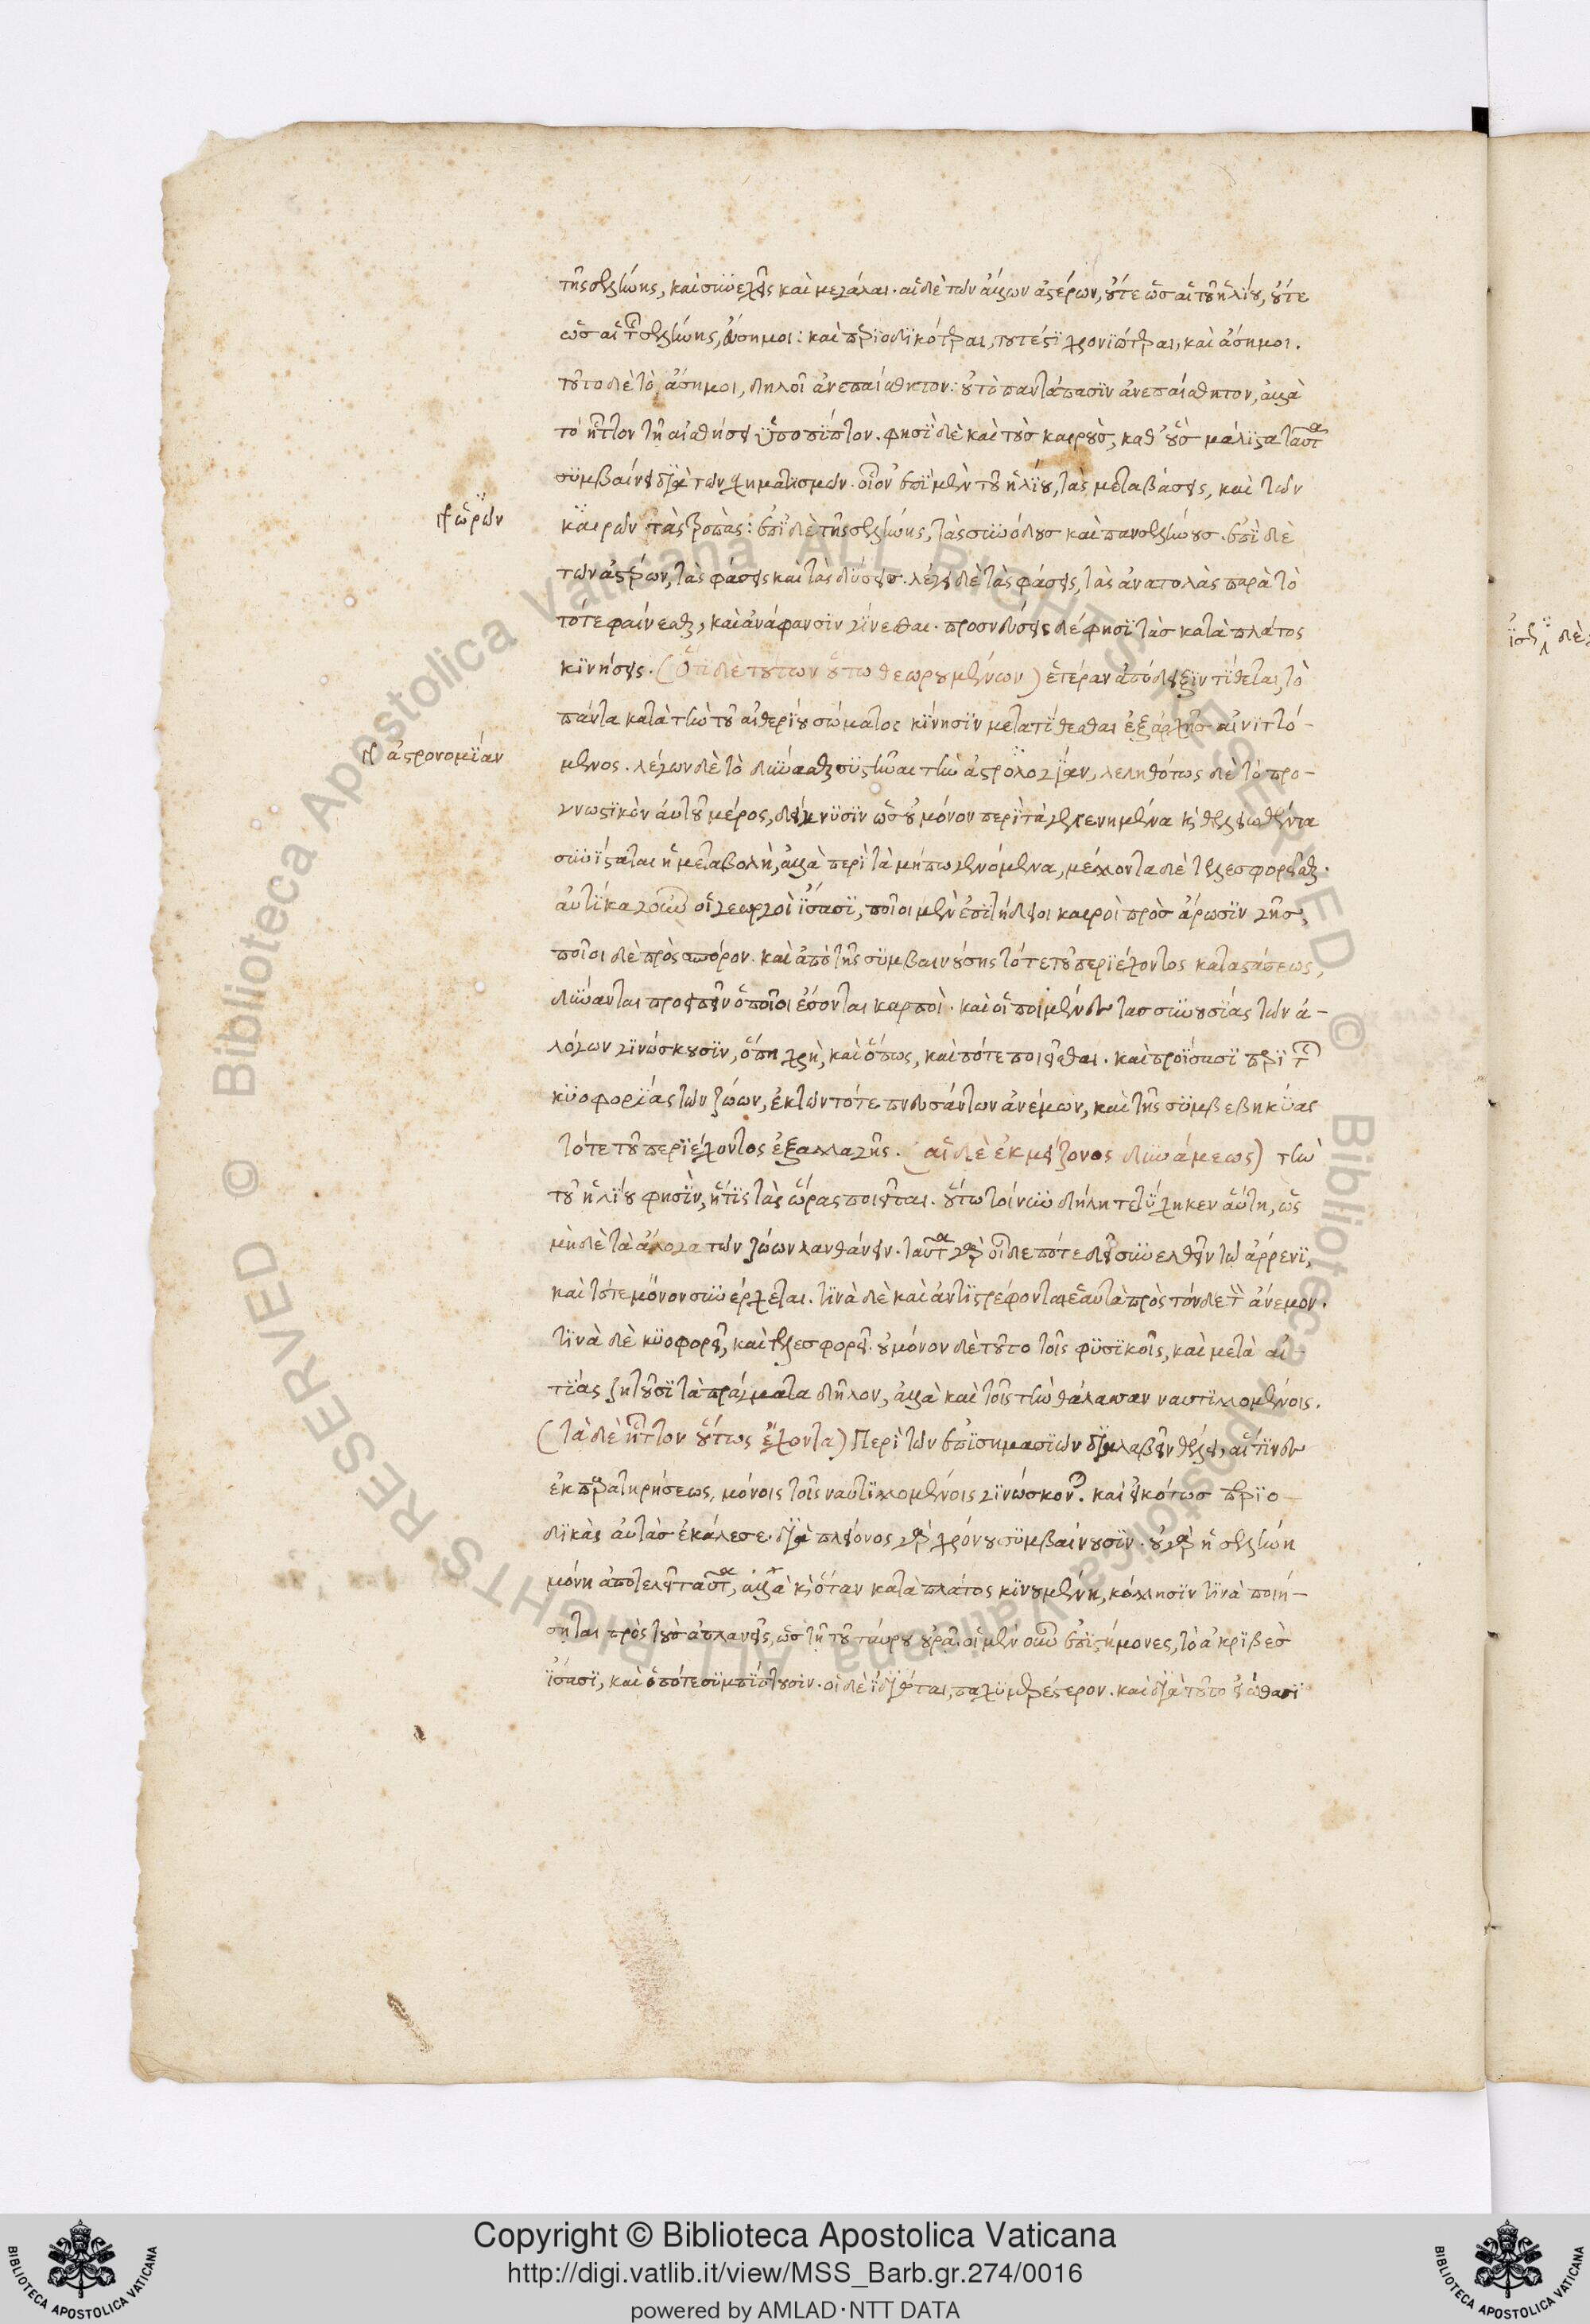 τῆς σελήνης, καὶ συνεχεῖς καὶ μεγάλαι. αἱ δὲ τῶν ἄλλων ἀστέρων, οὔτε ὡς αἱ τοῦ ἡλίου, οὔτε
ὡς αἱ τῆς σελήνης, εὔσημοι: καὶ περιοδικότεραι, τουτέστι χρονιώτεραι, καὶ ἄσημοι.
τοῦτο δὲ τὸ, ἄσημοι, δηλοῖ ἀνεπαίσθητον: οὐ τὸ παντάπασιν ἀνεπαίσθητον, ἀλλὰ
τὸ ἧττον τῇ αἰσθήσει ὑποπῖπτον. φησὶ δὲ καὶ τοὺς καιροὺς, καθ' οὓς μάλιστα ταῦτα
συμβαίνει διὰ τῶν σχηματισμῶν. οἷον ἐπὶ μὲν τοῦ ἡλίου, τὰς μεταβάσεις, καὶ τῶν
ὡρῶν
καιρῶν τὰς τροπάς: ἐπὶ δὲ τῆς σελήνης, τὰς συνόδους καὶ πανσελήνους. ἐπὶ δὲ
τῶν ἀστέρων, τὰς φάσεις καὶ τὰς δύσεις. λέγει δὲ τὰς φάσεις, τὰς ἀνατολὰς παρὰ τὸ
τότε φαίνεσθαι, καὶ ἀνάφανσιν γίνεσθαι. προσνεύσεις δέ φησι τὰς κατὰ πλάτος
κινήσεις. (Ὅτι δὲ τούτων οὕτω θεωρουμένων) ἑτέραν ἀπόδειξιν τίθεται, τὸ
πάντα κατὰ τὴν τοῦ αἰθερίου σώματος κίνησιν μετατίθεσθαι ἐξαρχῆς αἰνιττό-
ἀστρονομίαν
μενος. λέγων δὲ τὸ δύνασθαι συστῆναι τὴν ἀστρολογίαν, λεληθότως δὲ τὸ προ-
γνωστικὸν αὐτοῦ μέρος, δείκνυσιν ὡς οὐ μόνον περὶ τὰ γεγενημένα κ τελειωθέντα
συνίσταται ἡ μεταβολὴ, ἀλλὰ περὶ τὰ μήπω γενόμενα, μέλλοντα δὲ τελεσφορεῖσθαι.
αὐτίκα γοῦν οἱ γεωργοὶ ἴσασι, ποῖοι μὲν ἐπιτήδειοι καιροὶ πρὸς ἄρωσιν γῆς,
ποῖοι δὲ πρὸς σπόρον. καὶ ἀπὸ τῆς συμβαινούσης τότε τοῦ περιέχοντος καταστάσεως,
δύνανται προειπεῖν ὁποῖοι ἔσονται καρποὶ. καὶ οἱ ποιμένες τὰς συνουσίας τῶν ἀ-
λόγων γινώσκουσιν, ὅπη χρὴ, καὶ ὅπως, καὶ πότε ποιεῖσθαι. καὶ προΐσασι περὶ τῆς
κυοφορίας τῶν ζώων, ἐκ τῶν τότε πνευσάντων ἀνέμων, καὶ τῆς συμβεβηκυίας
τότε τοῦ περιέχοντος ἐξαλλαγῆς. (αἱ δὲ ἐκ μείζονος δυνάμεως) τὴν
τοῦ ἡλίου φησὶν, ἥτις τὰς ὥρας ποιεῖται. οὕτω τοίνυν δήλη τετύχηκεν αὕτη, ὡς
μηδὲ τὰ ἄλογα τῶν ζώων λανθάνειν. ταῦτα γὰρ οἶδε πότε δεῖ συνελθεῖν τῷ ἄρρενι,
καὶ τότε μόνον συνέρχεται. τινὰ δὲ καὶ ἀντιστρέφονται ἑαυτὰ πρὸς τόνδε τὸν ἄνεμον.
τινὰ δὲ κυοφορεῖ, καὶ τελεσφορεῖ. οὐ μόνον δὲ τοῦτο τοῖς φυσικοῖς, καὶ μετὰ αἰ-
τίας ζητοῦσι τὰ πράγματα δῆλον, ἀλλὰ καὶ τοῖς τὴν θάλασσαν ναυτιλλομένοις.
(τὰ δὲ ἧττον οὕτως ἔχοντα) Περὶ τῶν ἐπισημασιῶν διαλαβεῖν θέλει, αἵτινες
ἐκ παρατηρήσεως, μόνοις τοῖς ναυτιλλομένοις γινώσκονται. καὶ εἰκότως περιο-
δικὰς αὐτὰς ἐκάλεσε. διὰ πλείονος γὰρ χρόνου συμβαίνουσιν. οὐ γὰρ ἡ σελήνη
μόνη ἀποτελεῖ ταῦτα, ἀλλὰ κ ὅταν κατὰ πλάτος κινουμένη, κόλλησιν τινὰ ποιή-
σηται πρὸς τοὺς ἀπλανεῖς, ὡς τῇ τοῦ ταύρου οὐρᾷ. οἱ μὲν οὖν ἐπιστήμονες, τὸ ἀκριβὲς
ἴσασι, καὶ ὁπότε συμπίπτουσιν. οἱ δὲ ἰδιῶται, παχυμερέστερον. καὶ διὰ τοῦτο εἰώθασι
Copyright © Biblioteca Apostolica Vaticana
http://digi.vatlib.it/view/MSS_Barb.gr.274/0016
powered by AMLAD·NTT DATA